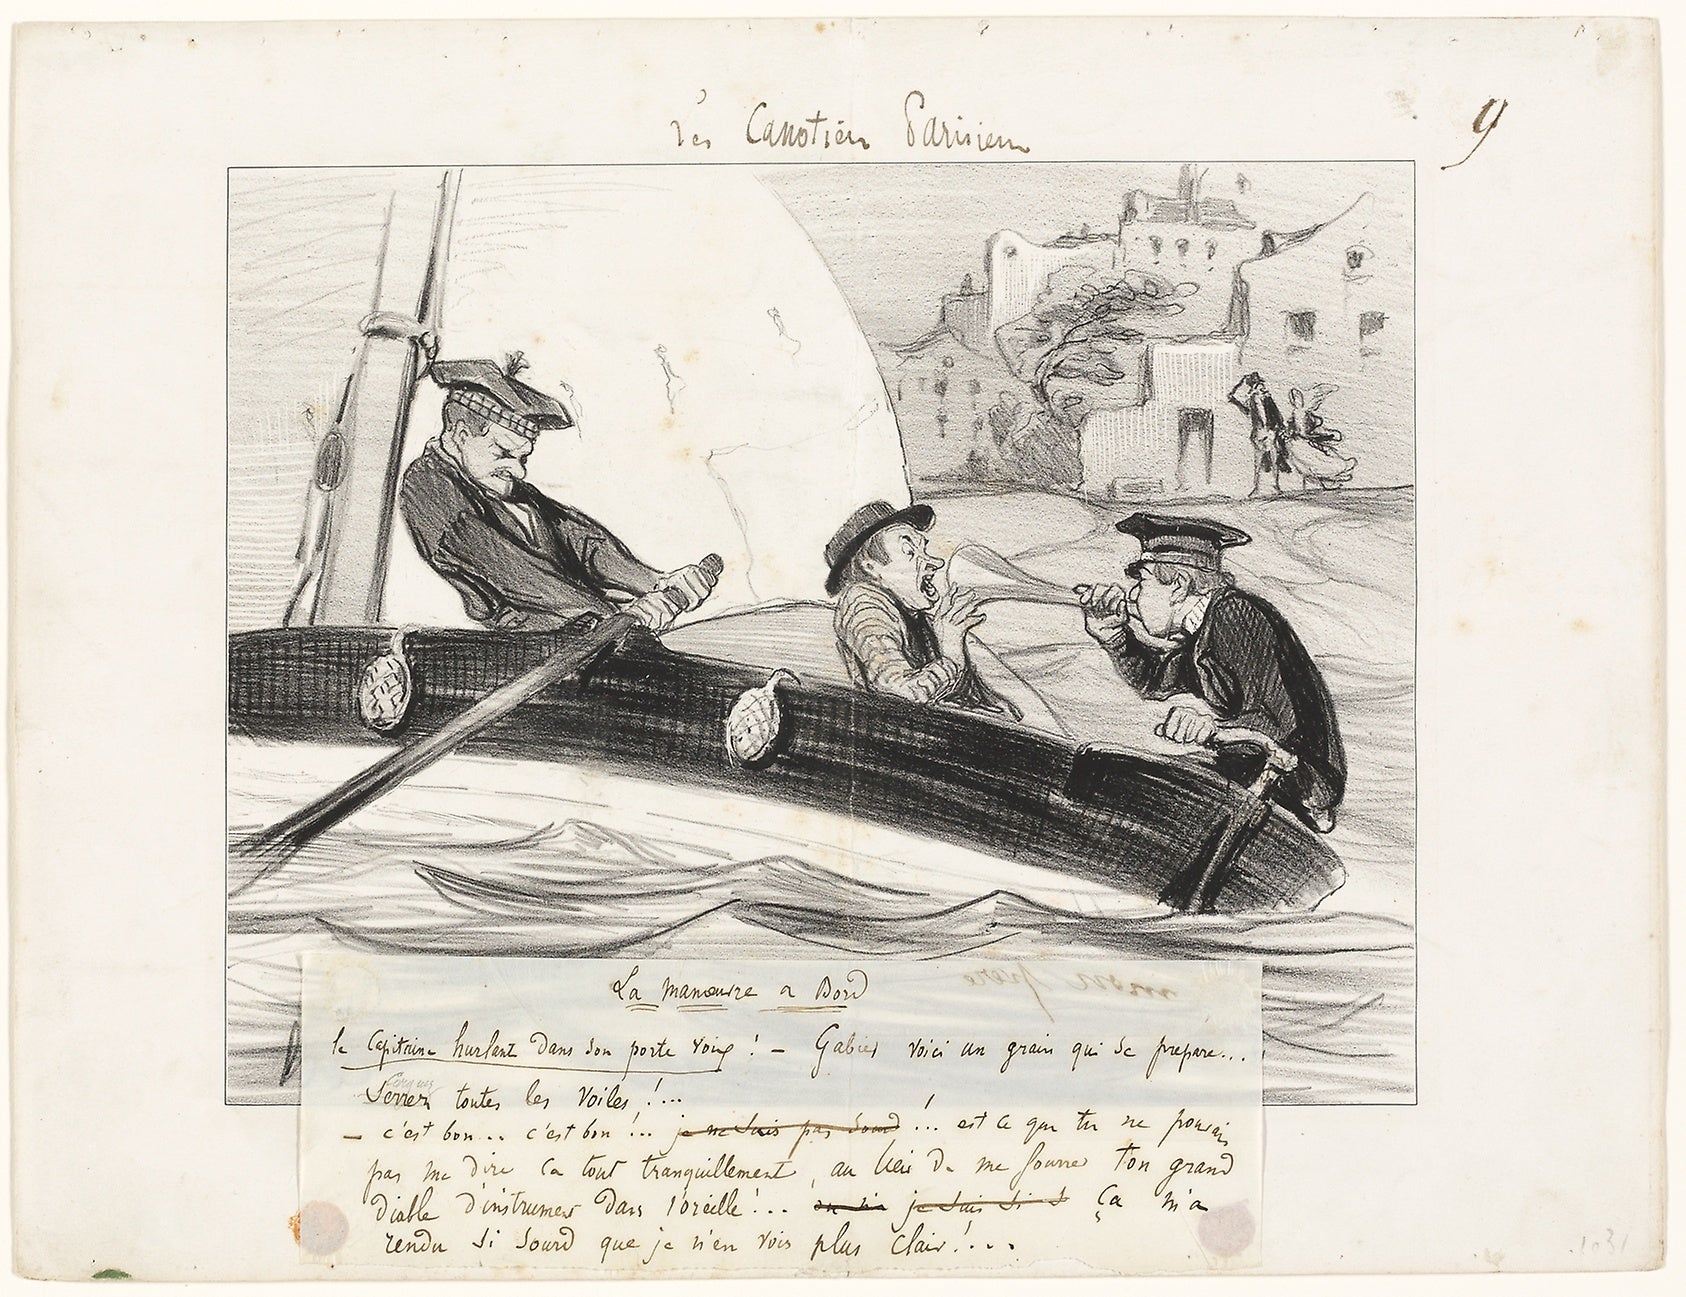 Les Canotiers Parisiens
9
La manœuvre a Bord
le Capitaine hurlant dans son porte voix ! – Gabier voici un grain qui se prepare...
Serrez toutes les voiles !...
– c'est bon... c'est bon !... je ne suis pas sourd !... est ce que tu ne pouvais
pas me dire ca tout tranquillement, au lieu de me fourrer ton grand
diable d'instrument dans l'oreille !... je suis si s Ça m'a
rendu si sourd que je n'en vois plus clair !...
mon père